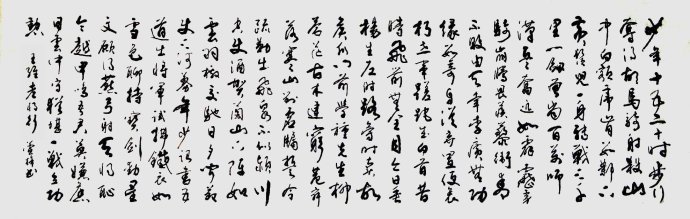 少年十五二十时步行
夺得胡马骑射杀山
中白额虎肯数邺下
黄须儿一身转战三千
里一剑曾当百万师
汉兵奋迅如霹雳虏
骑崩腾畏蒺藜卫青
不败由天幸李广无功
缘数奇自从弃置便衰
朽世事蹉跎成白首昔
时飞箭无全目今日垂
杨生左肘路旁时卖故
侯瓜门前学种先生柳
苍茫古木连穷巷寥
落寒山对虚牖誓令
疏勒出飞泉不似颍川
空使酒贺兰山下阵如
云羽檄交驰日夕闻节
使三河募年少诏书五
道出将军试拂铁衣如
雪色聊持宝剑动星
文愿得燕弓射天将耻
令越甲鸣吾君莫嫌旧
日云中守犹堪一战立功
勋 王维老将行